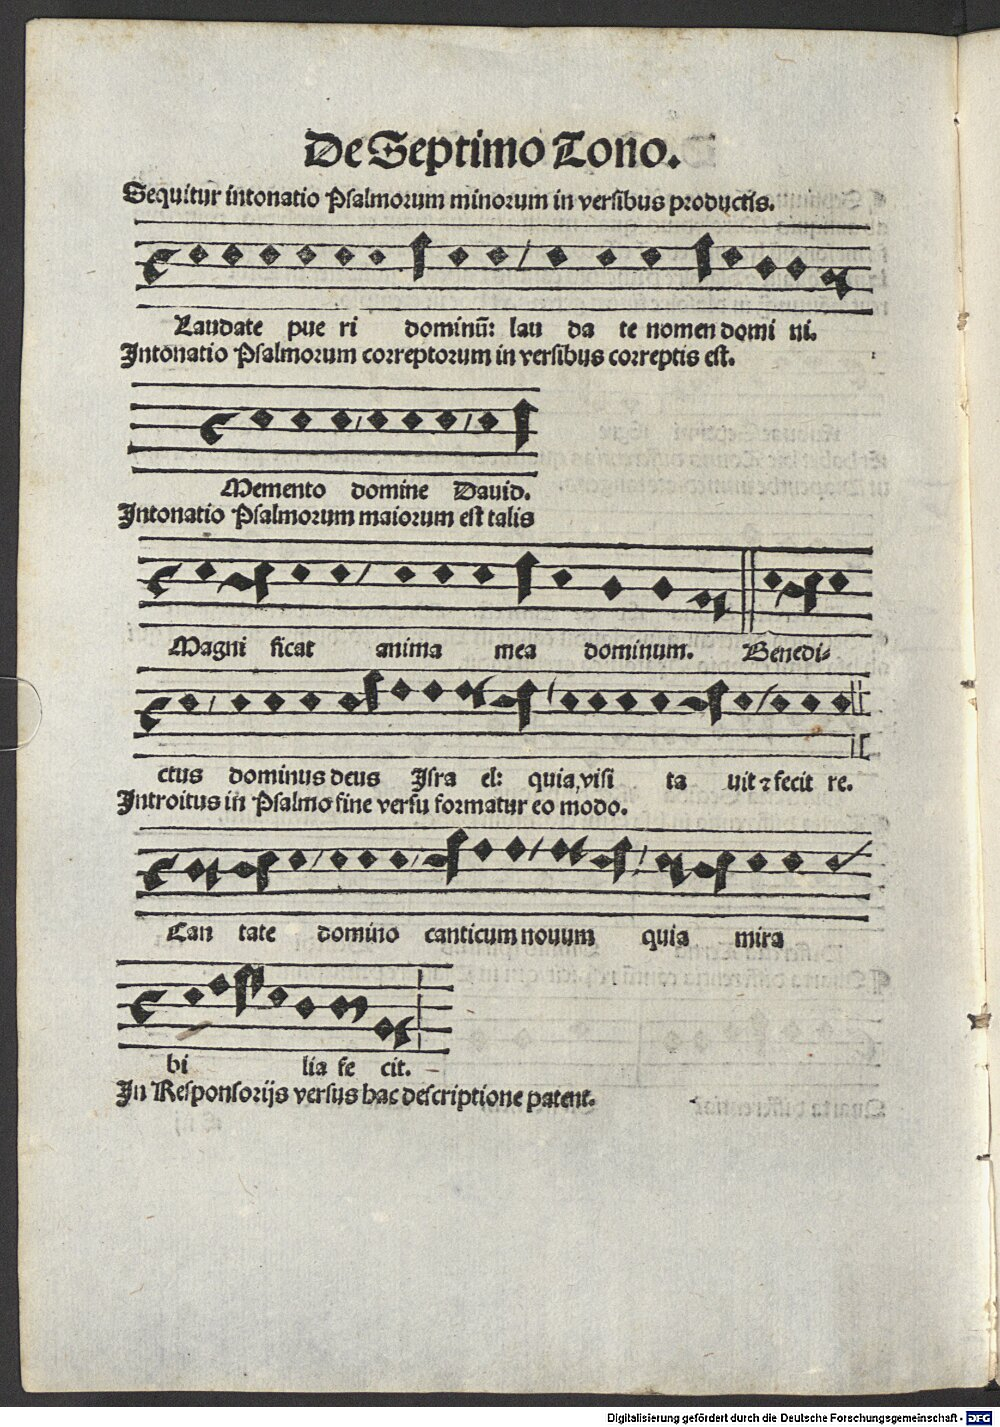 De Septimo Tono.
Sequitur intonatio Psalmorum minorum in versibus productis.
Laudate pue ri dominū: lau da te nomen domi ni.
Intonatio Psalmorum correptorum in versibus correptis est.
Memento domine David.
Intonatio Psalmorum maiorum est talis
Magni ficat anima mea dominum. Benedi-
ctus dominus deus Isra el: quia, visi ta uit ⁊ fecit re.
Introitus in Psalmo sine versu formatur eo modo.
Can tate domino canticum nouum quia mira
bi lia fe cit.
In Responsorijs versus hac descriptione patent.
Digitalisierung gefördert durch die Deutsche Forschungsgemeinschaft - DFG